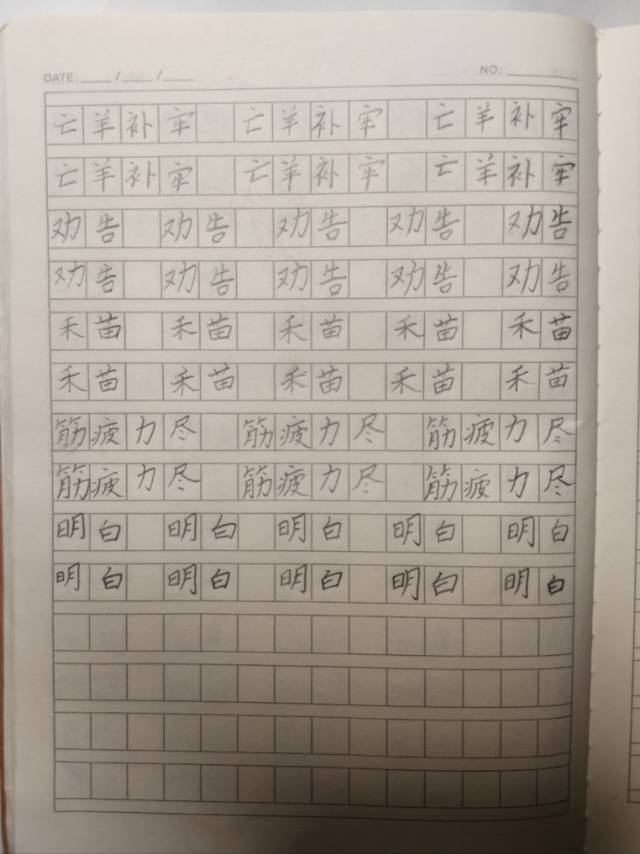 DATE: ____ / ____ / ____ NO: ________
亡羊补牢 亡羊补牢 亡羊补牢
亡羊补牢 亡羊补牢 亡羊补牢
劝告 劝告 劝告 劝告 劝告
劝告 劝告 劝告 劝告 劝告
禾苗 禾苗 禾苗 禾苗 禾苗
禾苗 禾苗 禾苗 禾苗 禾苗
筋疲力尽 筋疲力尽 筋疲力尽
筋疲力尽 筋疲力尽 筋疲力尽
明白 明白 明白 明白 明白
明白 明白 明白 明白 明白